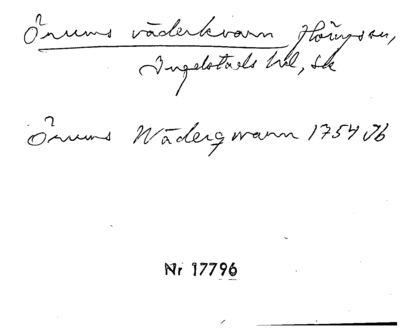 Örums väderkvarn Hörups sn,
Ingelstads hd, Sk
Örums Wäderqwarn 1754 Jb
Nr 17796